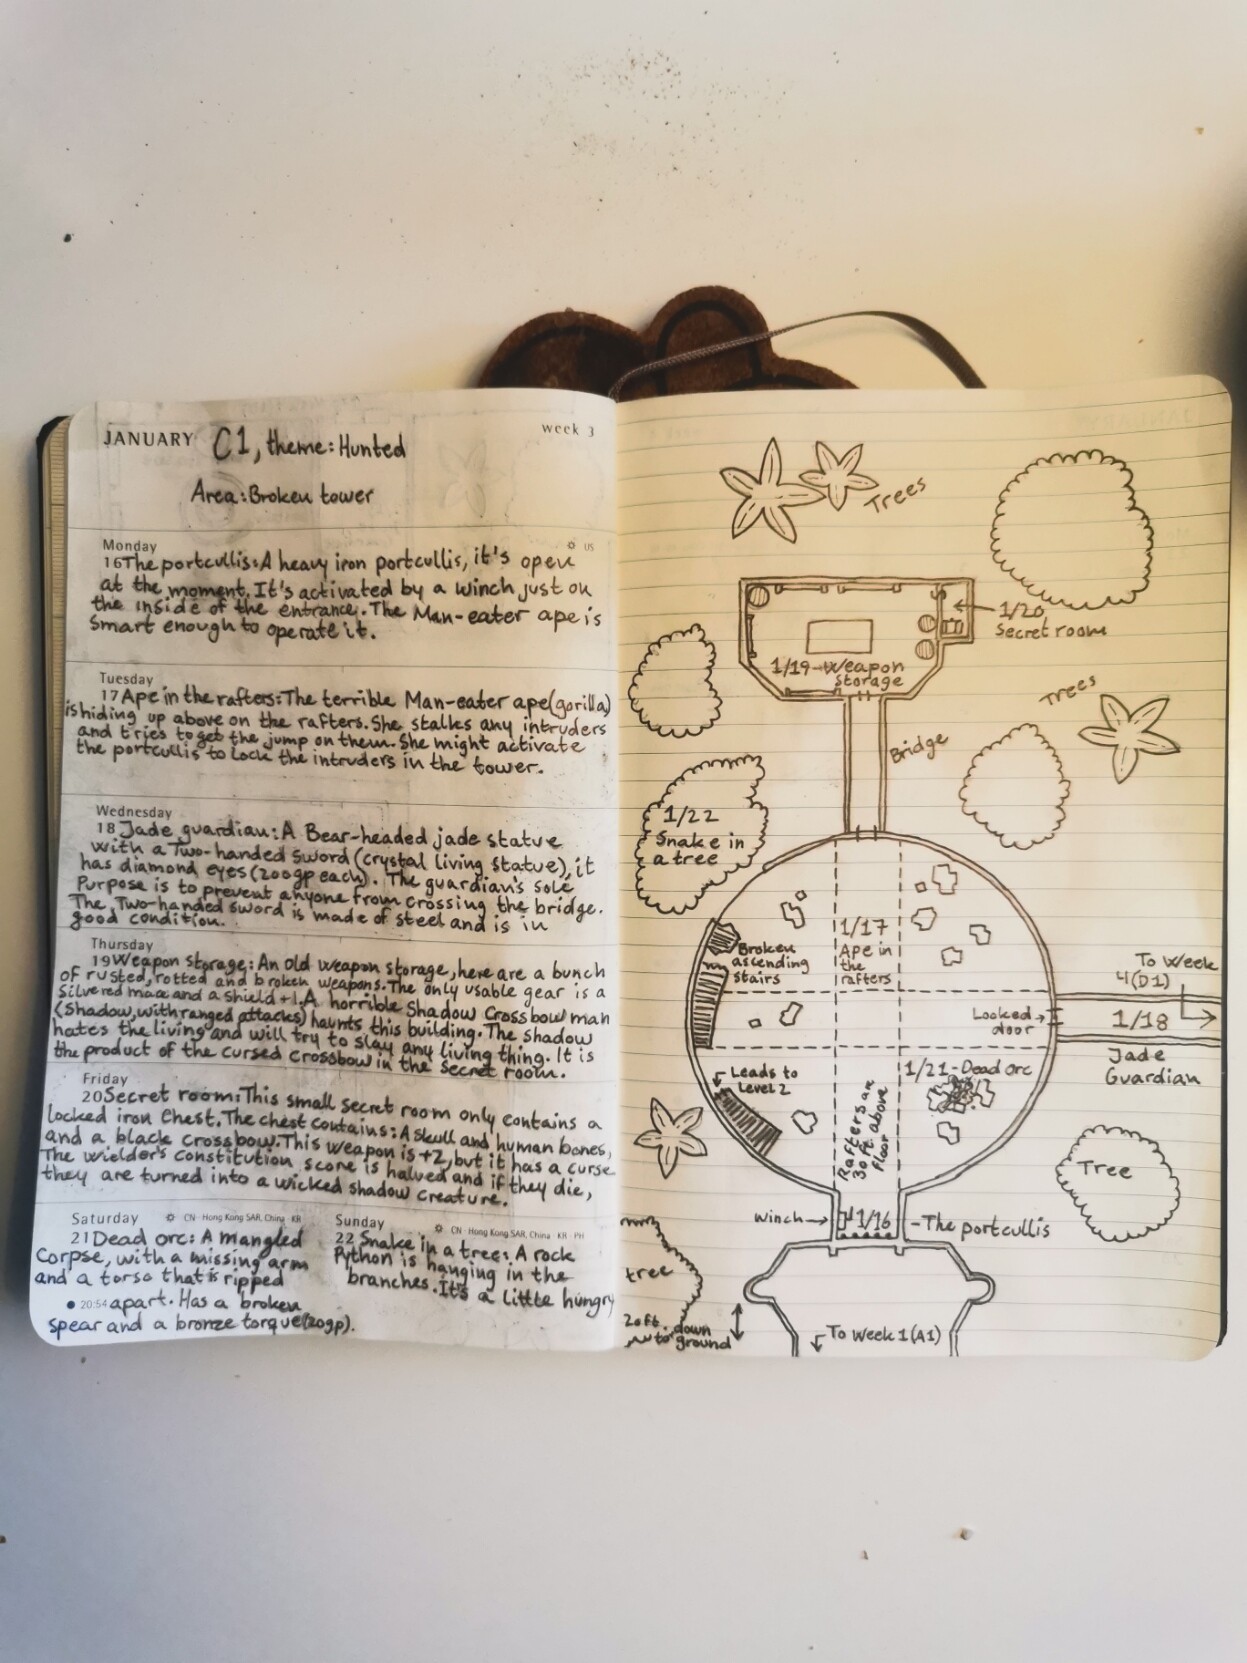 JANUARY C1, theme: Hunted
week 3
Area: Broken tower
Monday
US
16 The portcullis: A heavy iron portcullis, it's open
at the moment. It's activated by a winch just on
the inside of the entrance. The Man-eater ape is
smart enough to operate it.
Tuesday
17 Ape in the rafters: The terrible Man-eater ape (gorilla)
is hiding up above on the rafters. She stalks any intruders
and tries to get the jump on them. She might activate
the portcullis to lock the intruders in the tower.
Wednesday
18 Jade guardian: A Bear-headed jade statue
with a Two-handed Sword (crystal living statue), it
has diamond eyes (200gp each). The guardian's sole
Purpose is to prevent anyone from crossing the bridge.
The Two-handed sword is made of steel and is in
good condition.
Thursday
19 Weapon storage: An old weapon storage, here are a bunch
of rusted, rotted and broken weapons. The only usable gear is a
Silvered mace and a shield +1. A horrible Shadow Crossbow man
(Shadow, with ranged attacks) haunts this building. The Shadow
hates the living and will try to slay any living thing. It is
the product of the cursed crossbow in the secret room.
Friday
20 Secret room: This small secret room only contains a
locked iron Chest. The chest contains: A skull and human bones,
and a black crossbow. This weapon is +2, but it has a curse
The wielder's constitution score is halved and if they die,
they are turned into a wicked shadow creature.
Saturday CN · Hong Kong SAR, China · KR
21 Dead orc: A mangled
Corpse, with a missing arm
and a torso that is ripped
20:54 apart. Has a broken
spear and a bronze torque (20gp).
Sunday CN · Hong Kong SAR, China · KR · PH
22 Snake in a tree: A rock
Python is hanging in the
branches. It's a little hungry
Trees
1/20
Secret room
1/19-Weapon
storage
Trees
Bridge
1/22
Snake in
a tree
1/17
Ape in
the
rafters
Broken
ascending
stairs
To Week
4(D1)
Locked
door
1/18
Jade
Guardian
Leads to
Level 2
1/21-Dead orc
Rafters are
30 ft. above
floor
Tree
Winch
1/16
-The portcullis
tree
20ft. down
to ground
To Week 1 (A1)